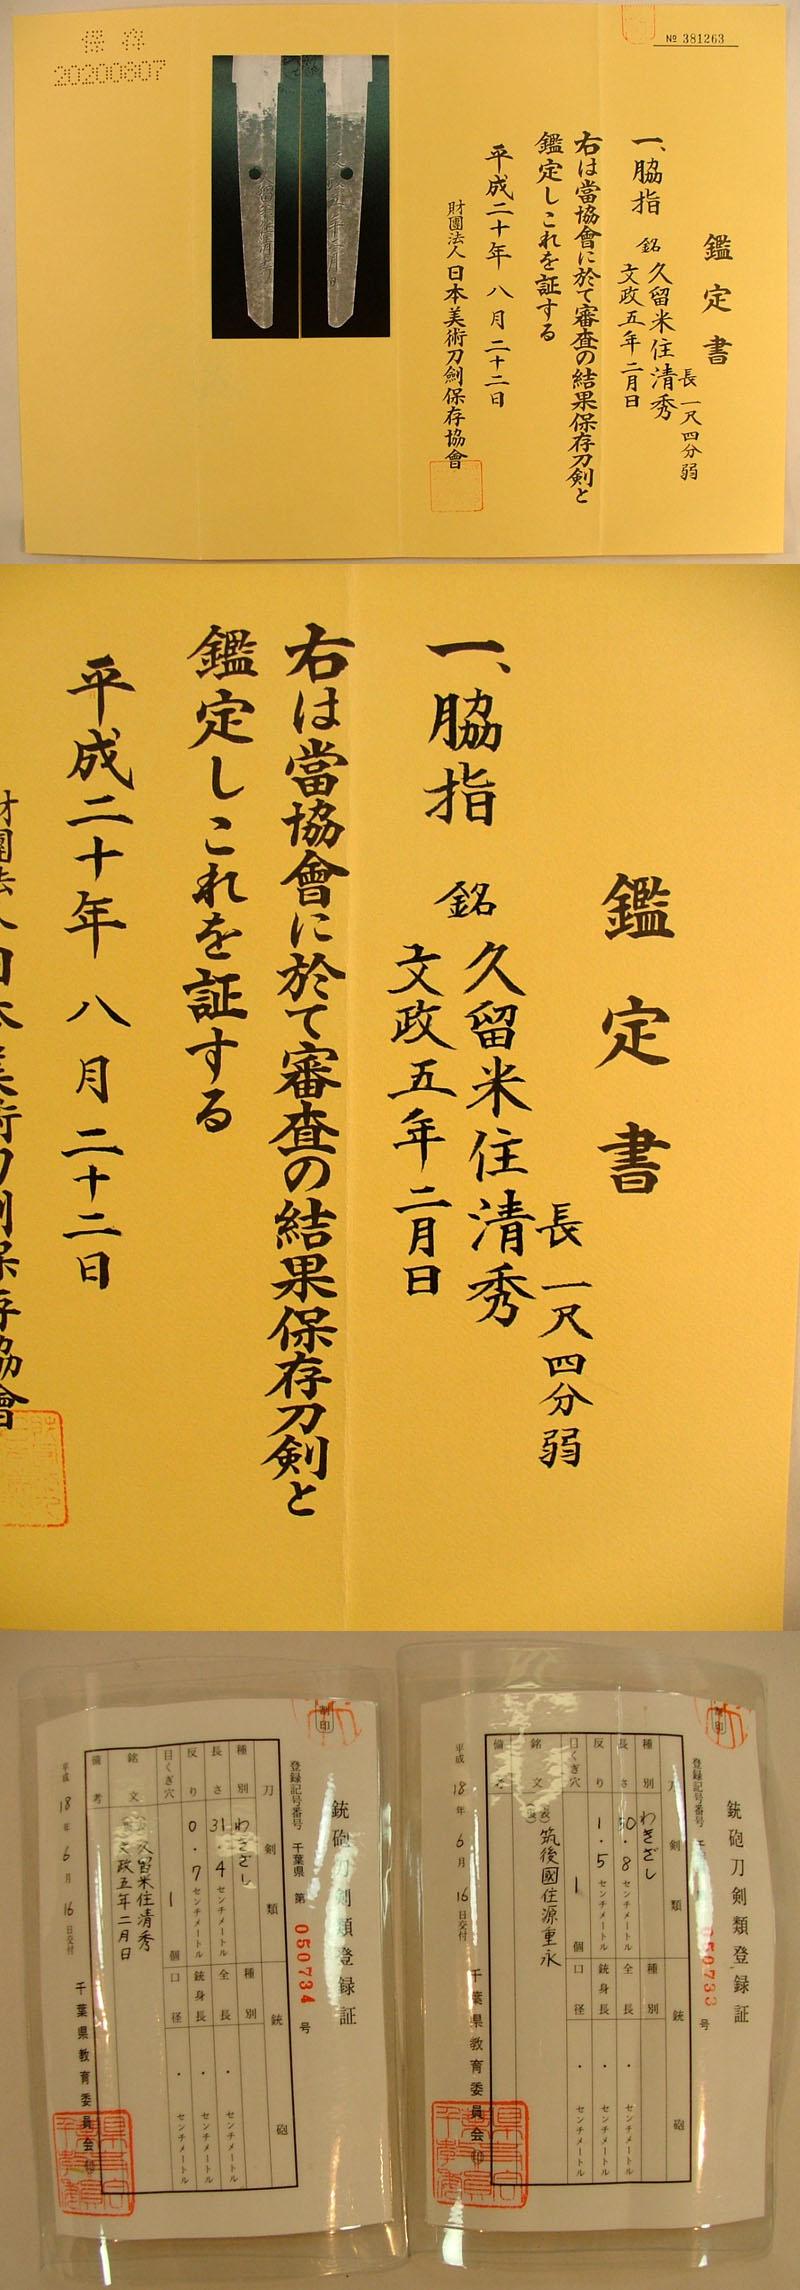 保存
20200807
№ 381263
鑑定書
長 一尺四分弱
一、脇指 銘 久留米住清秀
文政五年二月日
右は當協會に於て審査の結果保存刀剣と
鑑定しこれを証する
平成二十年 八月 二十二日
財團法人 日本美術刀劍保存協會
鑑定書
長 一尺四分弱
一、脇指 銘 久留米住清秀
文政五年二月日
右は當協會に於て審査の結果保存刀剣と
鑑定しこれを証する
平成二十年 八月 二十二日
財團法人 日本美術刀劍保存協會
銃砲刀剣類登録証
登録記号番号 050733 号
刀剣類 銃砲
種別 わきざし 種別
長さ 30.8 センチメートル 全長 ・ センチメートル
反り 1.5 センチメートル 銃身長 ・ センチメートル
目くぎ穴 1 個 口径 ・ センチメートル
銘文 筑後國住源重永
備考
平成 18 年 6 月 16 日交付
千葉県教育委員会 印
銃砲刀剣類登録証
登録記号番号 千葉県 第 050734 号
刀剣類 銃砲
種別 わきざし 種別
長さ 31.4 センチメートル 全長 ・ センチメートル
反り 0.7 センチメートル 銃身長 ・ センチメートル
目くぎ穴 1 個 口径 ・ センチメートル
銘文 久留米住清秀
文政五年二月日
備考
平成 18 年 6 月 16 日交付
千葉県教育委員会 印